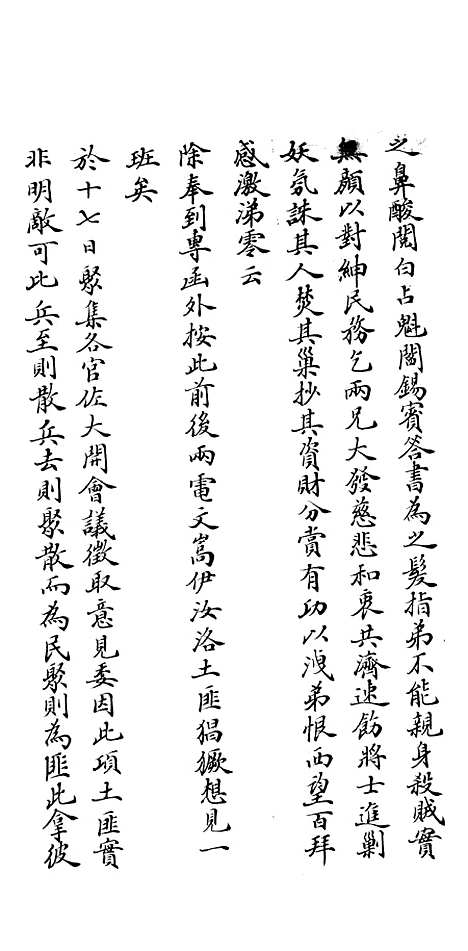 之鼻酸閱白占魁閻錫賓答書為之髮指弟不能親身殺賊實
無顏以對紳民務乞兩兄大發慈悲和衷共濟速飭將士進剿
妖氛誅其人焚其巢抄其資財分賞有功以洩弟恨西望百拜
感激涕零云
除奉到專函外按此前後兩電文嵩伊汝洛土匪猖獗想見一
班矣
於十七日聚集各官佐大開會議徵取意見委因此項土匪實
非明敵可此兵至則散兵去則聚散而為民聚則為匪此拿彼